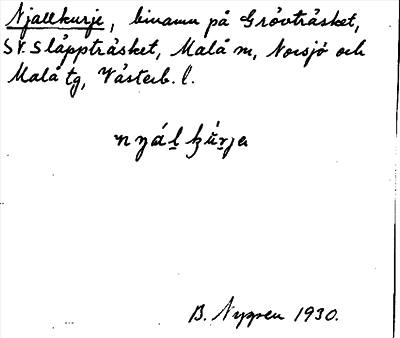 Njallkurje, binamn på Gråvträsket,
SV. Släppträsket, Malå sn, Norsjö och
Malå tg, Västerb. l.
B. Nygren 1930.